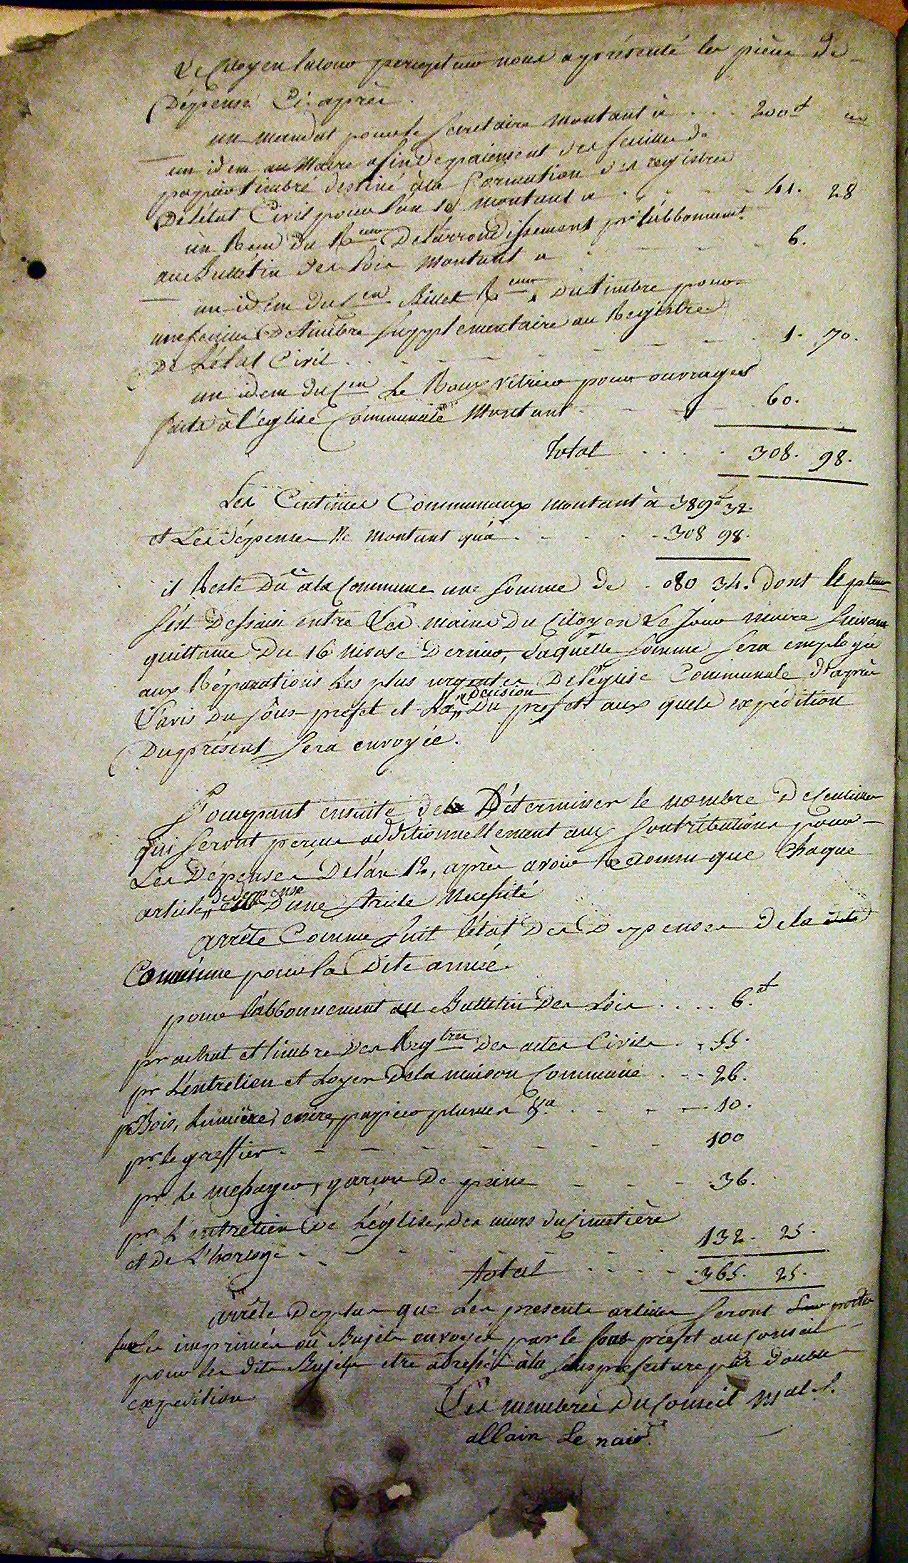 Le Citoyen percepteur nous a présenté les pièces de
Dépense Ci après.
un mandat pour le Secretaire montant à .... 200 ₶
un idem au Maire afin de paiement des feuilles de
papier timbré destiné à la formation des registres
De l'état Civil pour l'an 12 montant à . . . 41. 28
un Reçu du Rceveur De l'arrondissement pr l'abbonnement
au Bulletin des Lois montant à 6.
un idem du Cen Billet Rceveur du timbre pour
une feuille De timbre supplementaire au Registre
De l'état Civil . . . 1. 70.
un idem du Cen Le Roux vitrier pour ouvrages
faits à l'église Communale Montant . . . 60.
Total . . . . . 308. 98.
Les Centimes Communaux montant à 389 ₶ 32.
et Les dépenses Ne montant qu'à . . . 308 98.
il Reste Du à la Commune une somme de 080 34. dont le pteur
s'est Dessaisi entre Les mains du Citoyen Le maire suivant
quittance Du 16 nivose Dernier, Laquelle somme sera employée
aux Réparations les plus urgentes De l'église Communale d'après
L'avis du sous prefet et La décision Du prefet aux quels expédition
Du présent sera envoyée.
S'occupant ensuite de Déterminer le nombre De centimes
qui seront perçus additionnellement aux Contributions pour
Les Dépenses De l'an 12, après avoir Reconnu que Chaque
article de depense est D'une stricte Necessité
arrête Comme suit l'état Des Depenses de la
Commune pour la Dite année.
pour l'abbonnement au Bulletin Des Lois .... 6. ₶
pr achat et timbre des Regtres des actes Civils . 55.
pr L'entretien et Loyer De la maison Commune . - - 26.
pr Bois, Lumière, encre, papier plumes &a . . . 10.
pr le greffier - - - - - 100
pr Le messager, garçon De peine - - - 36.
pr L'entretien De L'église, des murs du Cimetière
et de L'horloge - - - - - 132. 25.
total . . . . - 365. 25.
arrête De plus que Les presents articles seront portés
sur les imprimés ou Bujets envoyés par le sous prefet au Conseil
pour les dits Bujets etre adressés à la sous prefecture par double
expedition
Les membres Du Conseil mal
allain Le nair